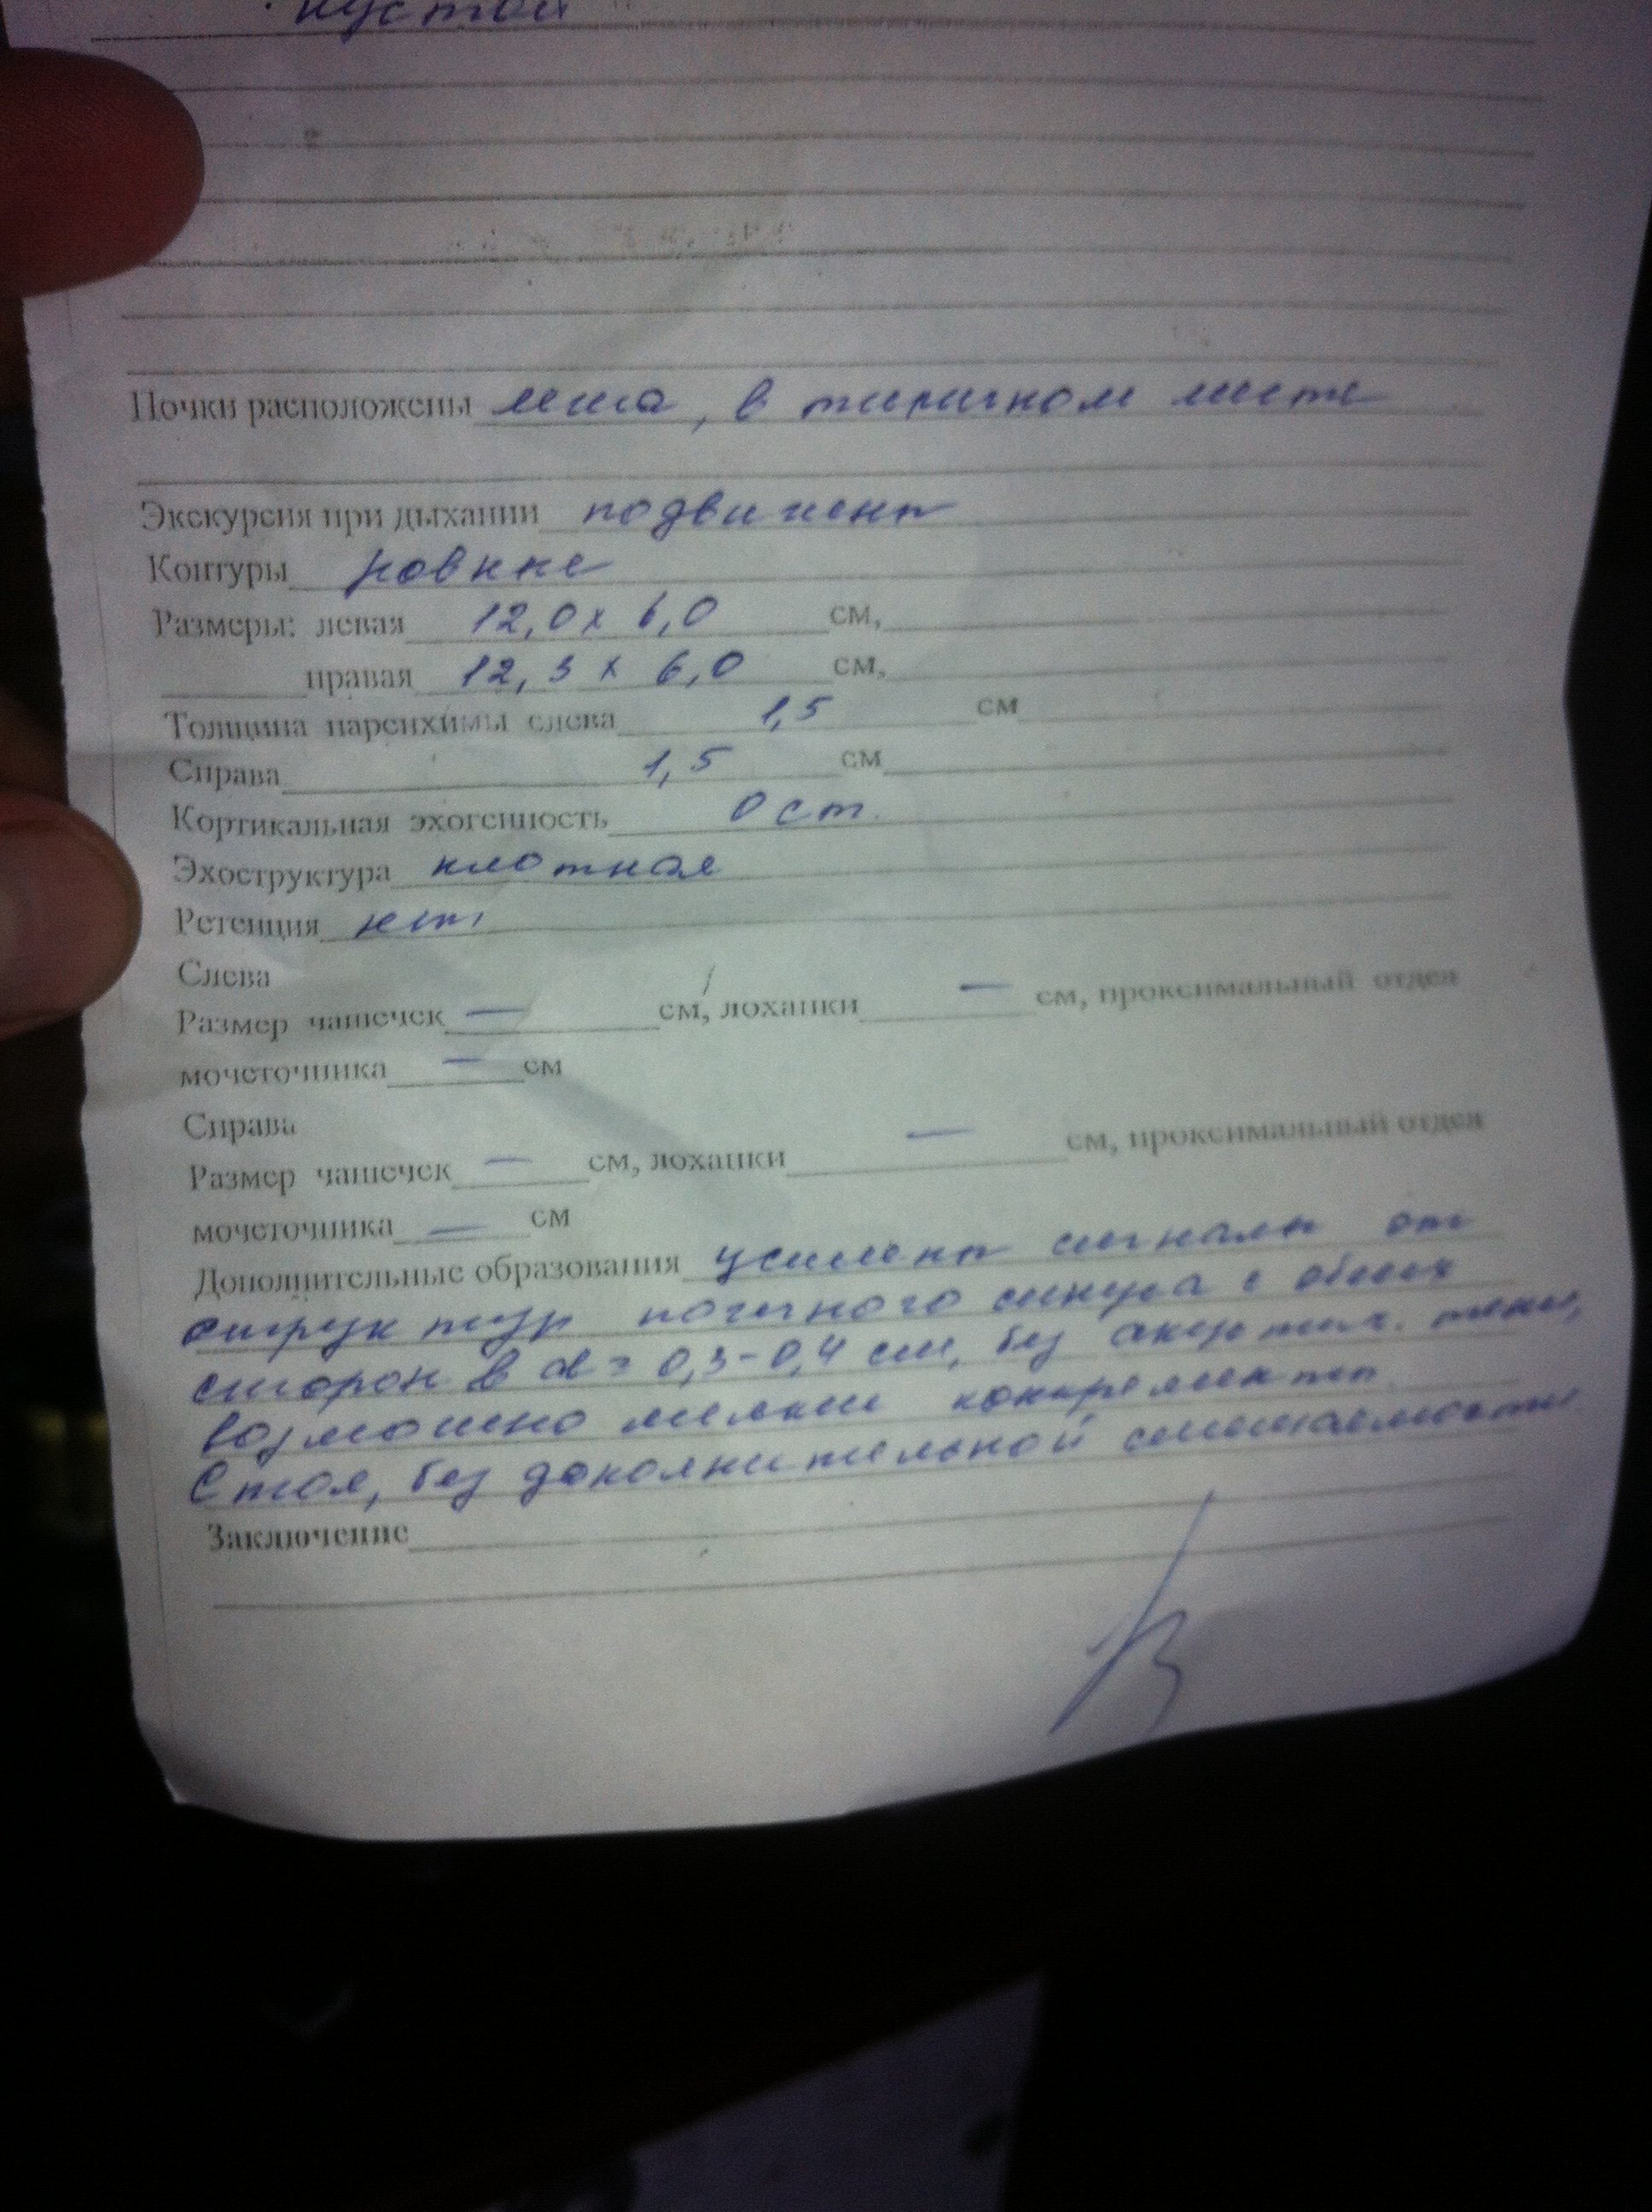 пустой
Почки расположены лежа, в типичном месте
Экскурсия при дыхании подвижны
Контуры ровные
Размеры: левая 12,0 х 6,0 см,
правая 12,3 х 6,0 см,
Толщина паренхимы слева 1,5 см
Справа 1,5 см
Кортикальная эхогенность 0 ст.
Эхоструктура плотная
Ретенция нет
Слева
Размер чашечек — см, лоханки — см, проксимальный отдел
мочеточника — см
Справа
Размер чашечек — см, лоханки — см, проксимальный отдел
мочеточника — см
Дополнительные образования усилены сигналы от
структур почечного синуса с обеих
сторон в d= 0,3-0,4 см, без акустич. тени,
возможно мелкие конкременты.
Стоя, без дополнительной смещаемости
Заключение